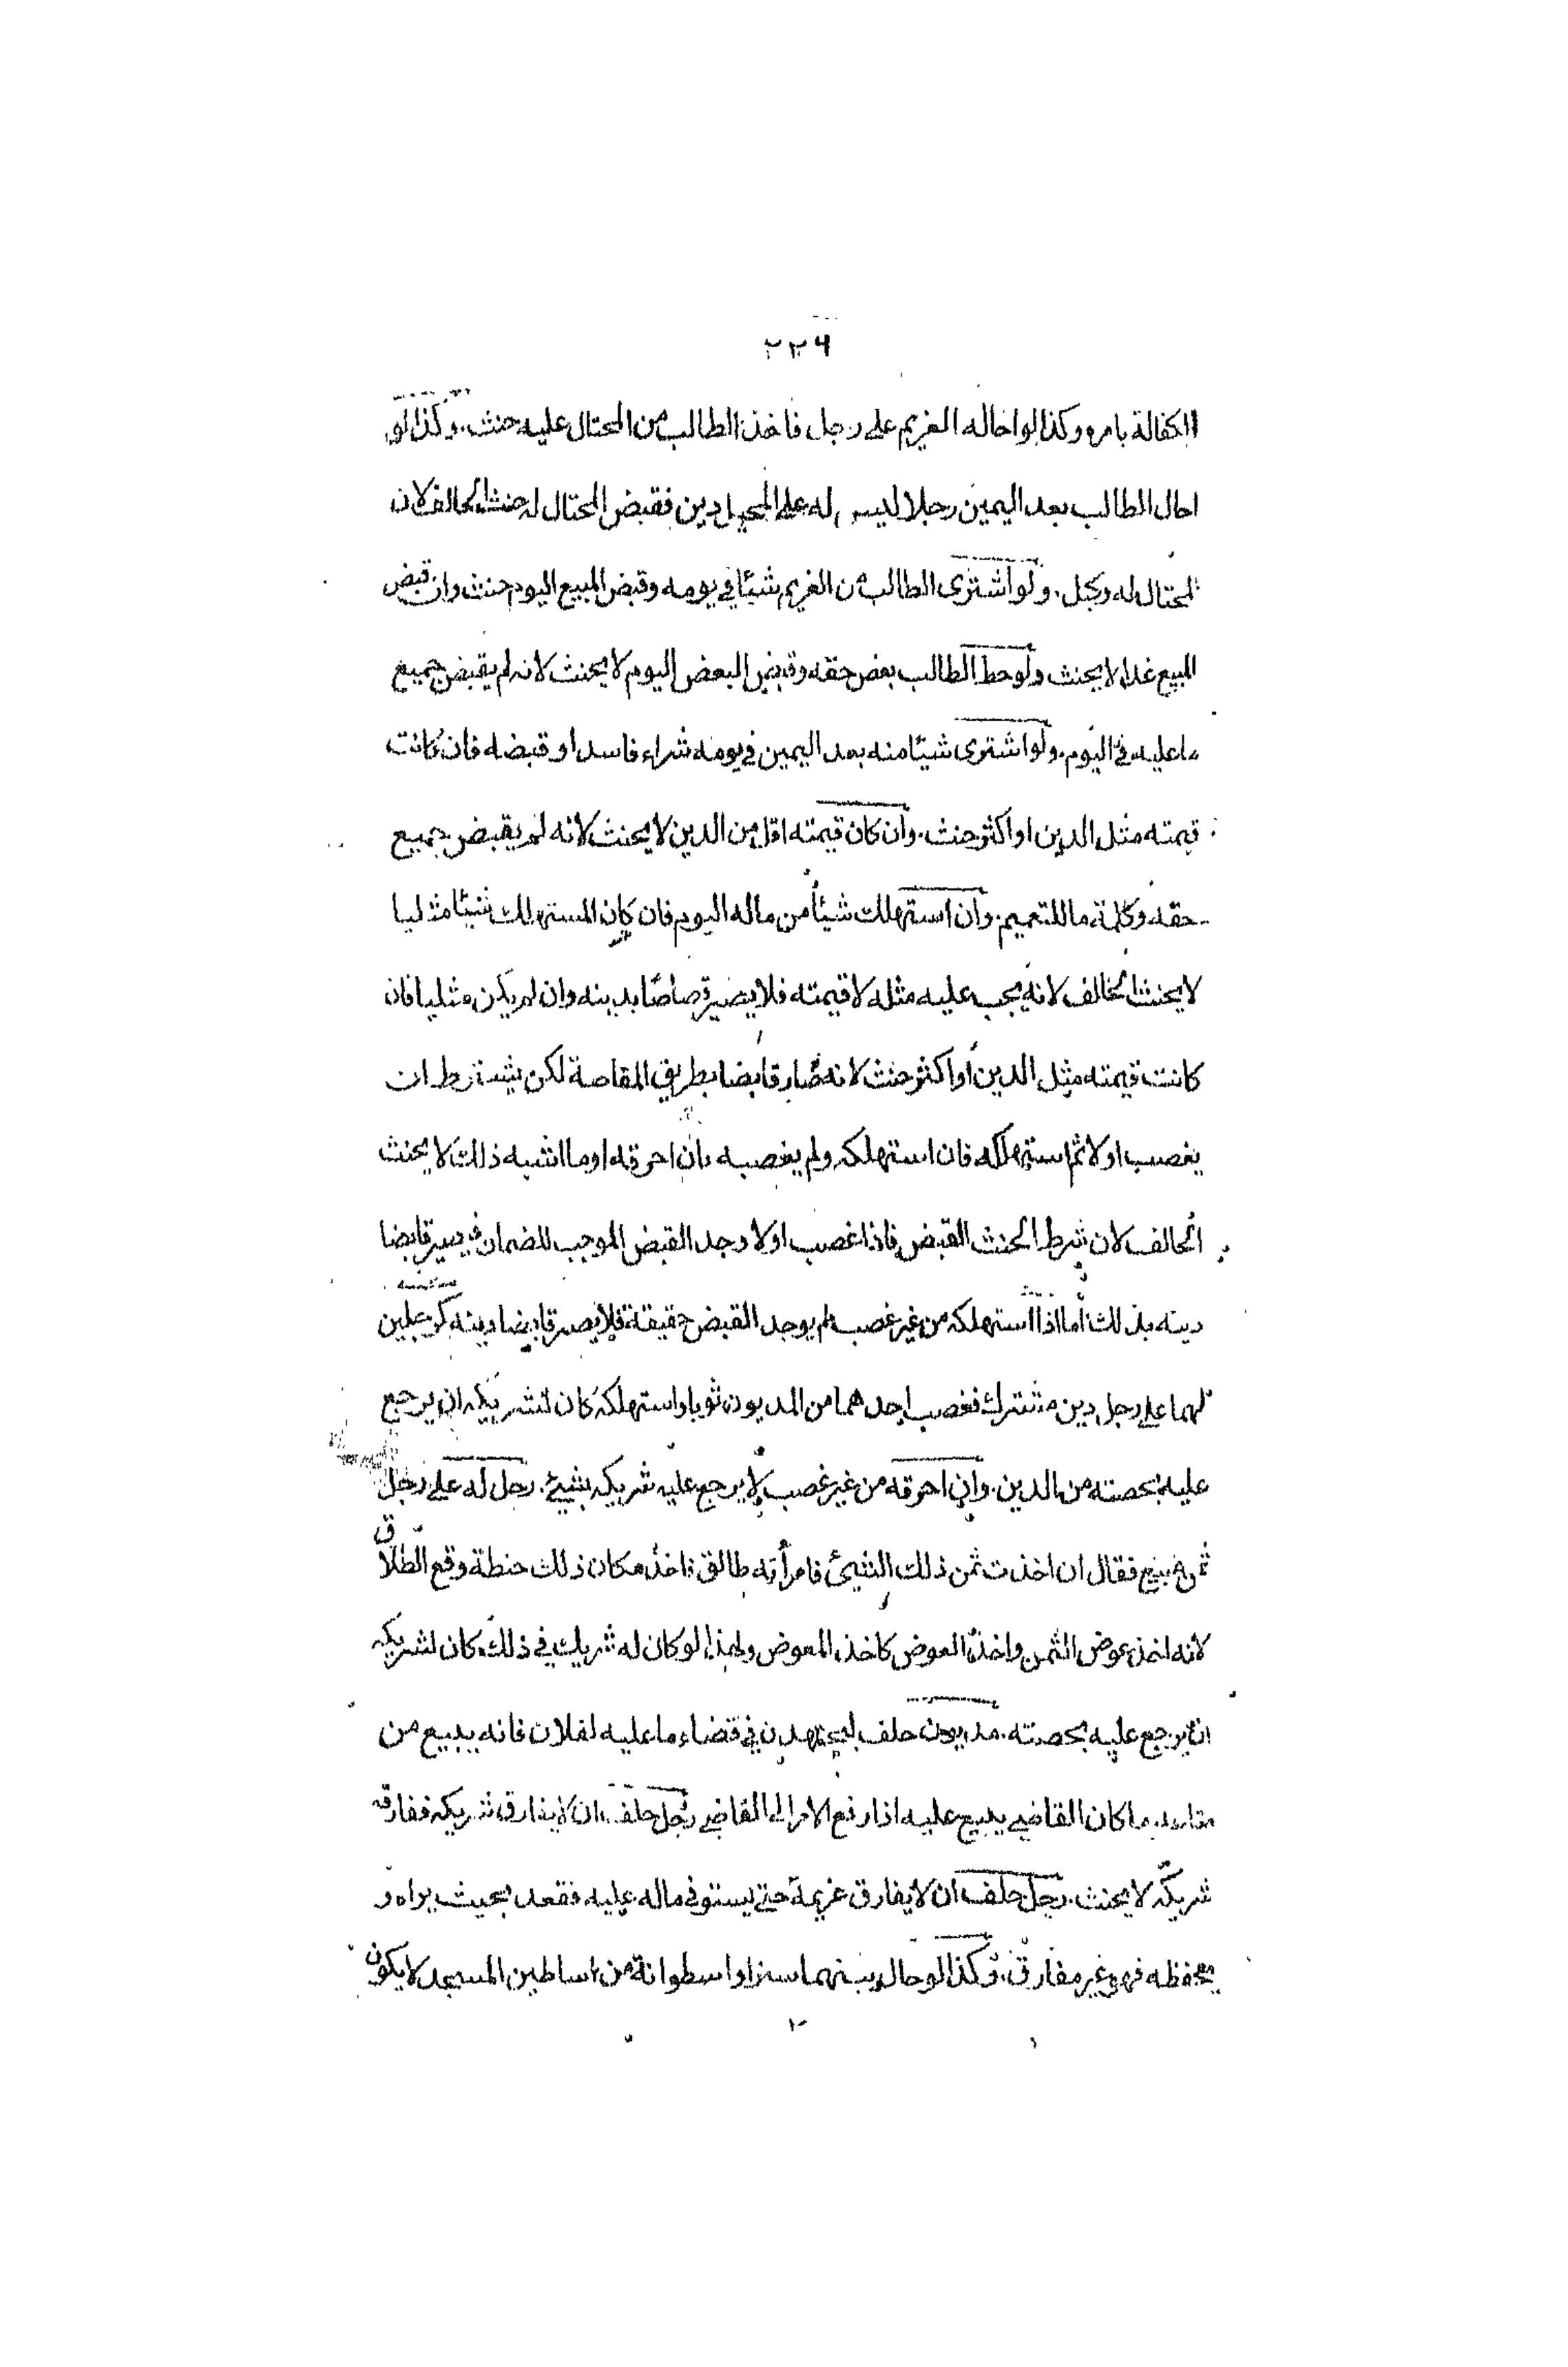 ٢٢٦
الكفالة بامره وكذا لو احاله الغريم على رجل فاخذ الطالب من المحتال عليه حنث . وكذا لو
احال الطالب بعد اليمين رجلا ليس له على المحيل دين فقبض المحتال له حنث الحالف لان
المحتال له وكيل . ولو اشترى الطالب من الغريم شيئا في يومه وقبض المبيع اليوم حنث وان قبض
المبيع غدا لا يحنث ولو حط الطالب بعض حقه وقبض البعض اليوم لا يحنث لانه لم يقبض جميع
ما عليه في اليوم . ولو اشترى شيئا منه بعد اليمين في يومه شراء فاسدا وقبضه فان كانت
قيمته مثل الدين او اكثر حنث . وان كان قيمته اقل من الدين لا يحنث لانه لم يقبض جميع
حقه وكلمة ما للتعميم . وان استهلك شيئا من ماله اليوم فان كان المستهلك شيئا مثليا
لا يحنث الحالف لانه يجب عليه مثله لا قيمته فلا يصير قصاصا بدينه وان لم يكن مثليا فان
كانت قيمته مثل الدين او اكثر حنث لانه صار قابضا بطريق المقاصة لكن يشترط ان
يغصب اولا ثم استهلكه فان استهلكه ولم يغصبه بان احرقه او ما اشبه ذلك لا يحنث
الحالف لان شرط الحنث القبض فاذا غصب اولا وجد القبض الموجب للضمان فيصير قابضا
دينه بذلك اما اذا استهلكه من غير غصب لم يوجد القبض حقيقة فلا يصير قابضا دينه كرجلين
لهما على رجل دين مشترك فغصب احدهما من المديون ثوبا واستهلكه كان لشريكه ان يرجع
عليه بحصته من الدين . وان احرقه من غير غصب لا يرجع عليه شريكه بشيئ . رجل له على رجل
ثمن مبيع فقال ان اخذت ثمن ذلك الشيئ فامرأته طالق فاخذ مكان ذلك حنطة وقع الطلاق
لانه اخذ عوض الثمن واخذ العوض كاخذ المعوض ولهذا لو كان له شريك في ذلك كان لشريكه
ان يرجع عليه بحصته . مديون حلف ليجتهدن في قضاء ما عليه لفلان فانه يبيع من
ما كان القاضي يبيع عليه اذا رفع الامر الى القاضي رجل حلف ان لا يفارق شريكه ففارقه
شريكه لا يحنث . رجل حلف ان لا يفارق غريمه حتى يستوفى ماله عليه فقعد بحيث يراه و
يحفظه فهو غير مفارق . وكذا لو حال بينهما ستر او اسطوانة من اساطين المسجد لا يكون